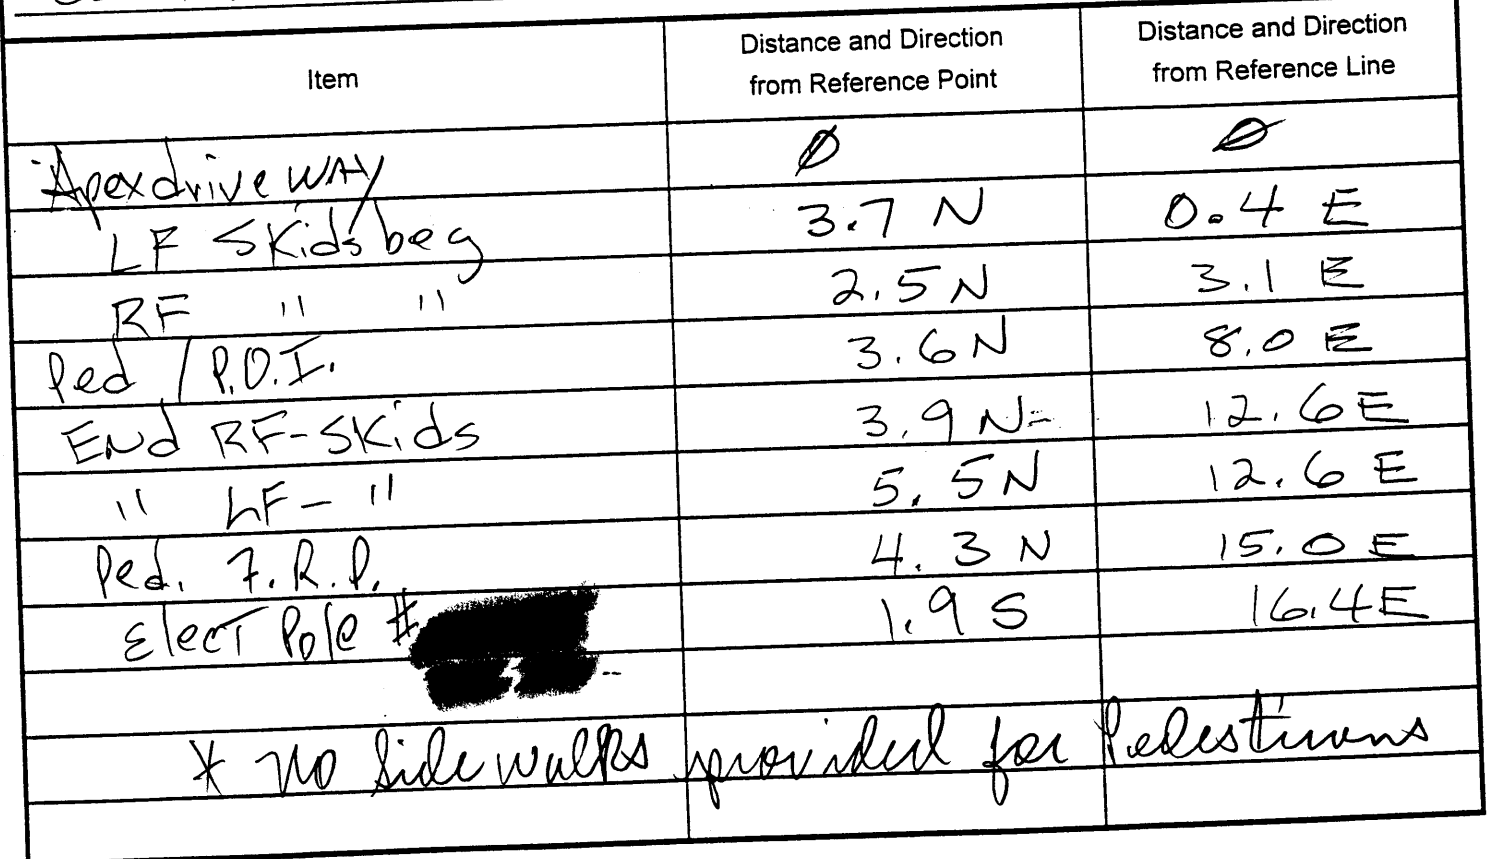 Item Distance and Direction from Reference Point Distance and Direction from Reference Line
Apex driveway ∅ ∅
LF Skids beg 3.7 N 0.4 E
RF " " 2.5 N 3.1 E
Ped / P.O.I. 3.6 N 8.0 E
End RF-Skids 3.9 N- 12.6 E
" LF- " 5.5 N 12.6 E
Ped. F.R.P. 4.3 N 15.0 E
Elect Pole # 1.9 S 16.4 E
* No Sidewalks provided for Pedestrians